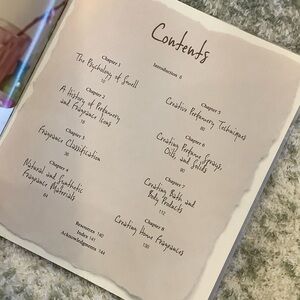 Contents
Introduction 6
Chapter 1
The Psychology of Smell
10
Chapter 2
A History of Perfumery
and Fragrance Icons
18
Chapter 3
Fragrance Classification
36
Chapter 4
Natural and Synthetic
Fragrance Materials
64
Chapter 5
Creative Perfumery Techniques
80
Chapter 6
Creating Perfume Sprays,
Oils, and Solids
90
Chapter 7
Creating Bath and
Body Products
112
Chapter 8
Creating Home Fragrances
130
Resources 140
Index 141
Acknowledgments 144